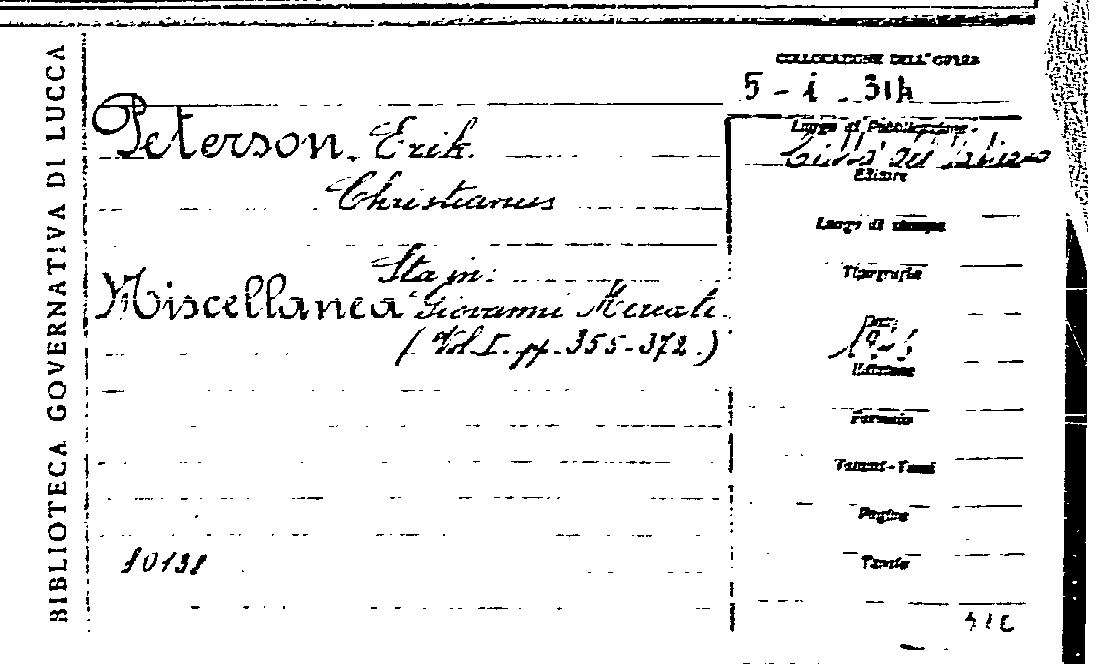 BIBLIOTECA GOVERNATIVA DI LUCCA
COLLOCAZIONE DELL'OPERA
5 - i - 314
Peterson. Erik.
Christianus
Sta in:
Miscellanea Giovanni Mercati.
(Vol I. pp. 355-372.)
Luogo di Pubblicazione
Città del Vaticano
Editore
Luogo di stampa
Tipografia
Edizione
Formato
Volumi-Tomi
Pagine
Tavole